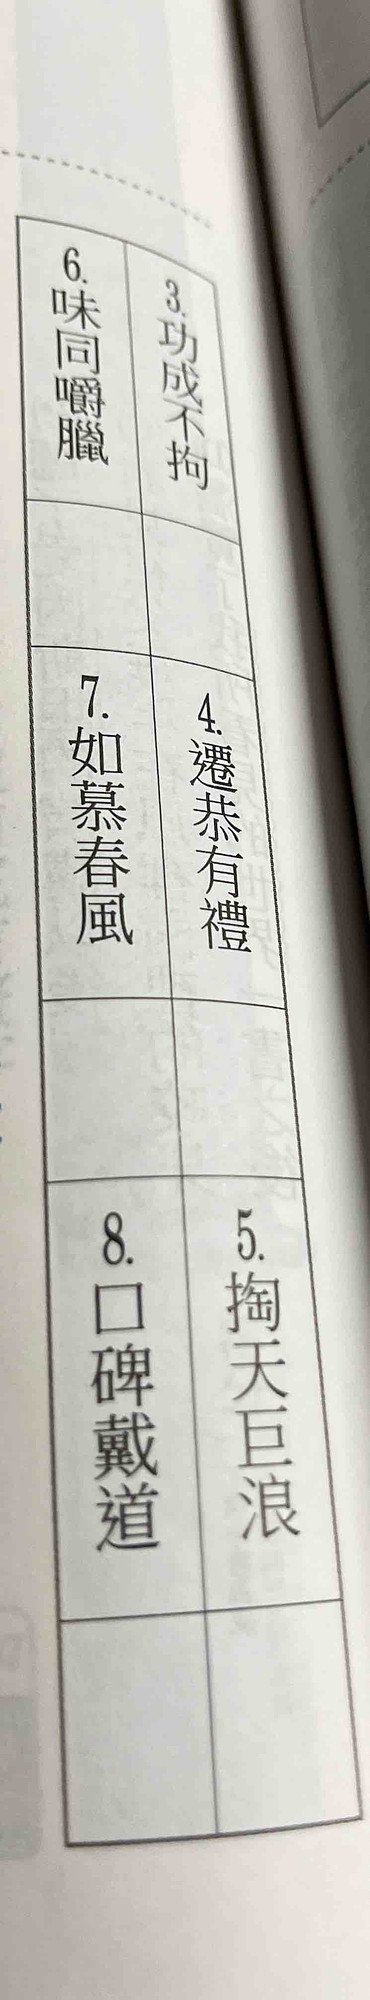 3.功成不拘
4.遷恭有禮
5.掏天巨浪
6.味同嚼臘
7.如慕春風
8.口碑戴道